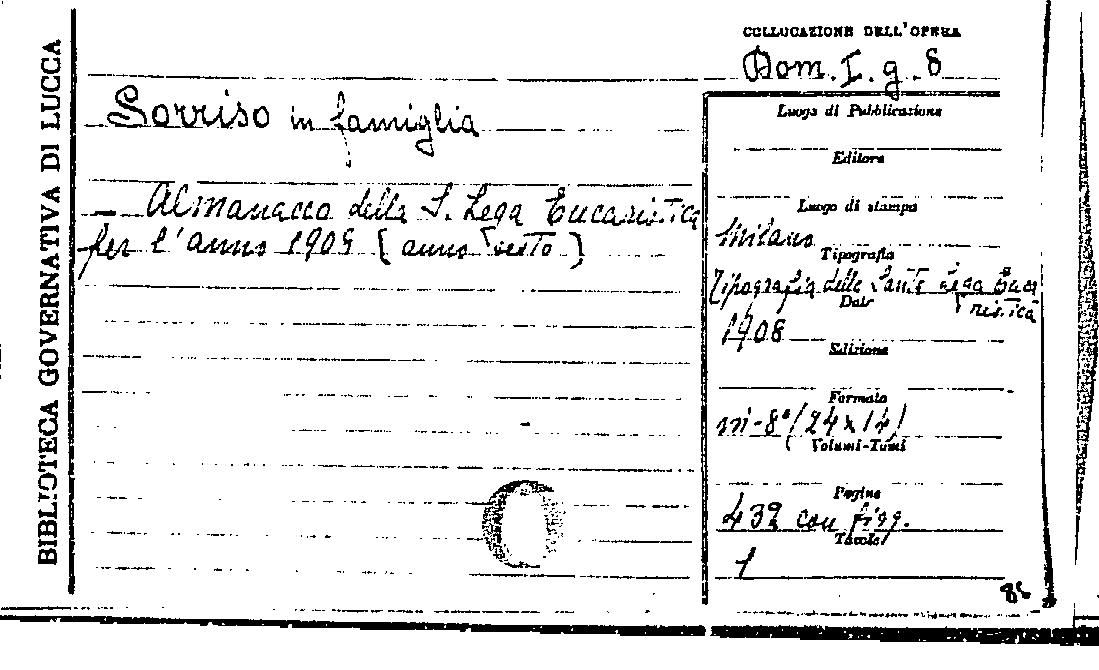 BIBLIOTECA GOVERNATIVA DI LUCCA
COLLOCAZIONE DELL'OPERA
Dom. I. g. 8
Sorriso in famiglia
— Almanacco della S. Lega Eucaristica
per l'anno 1909 [anno sesto]
Luogo di Pubblicazione
Editore
Luogo di stampa
Milano
Tipografia
Tipografia della Santa Lega Euca
ristica
Data
1908
Edizione
Formato
in-8° (24 x 14)
Volumi-Tomi
Pagine
432 con figg.
Tavole
1